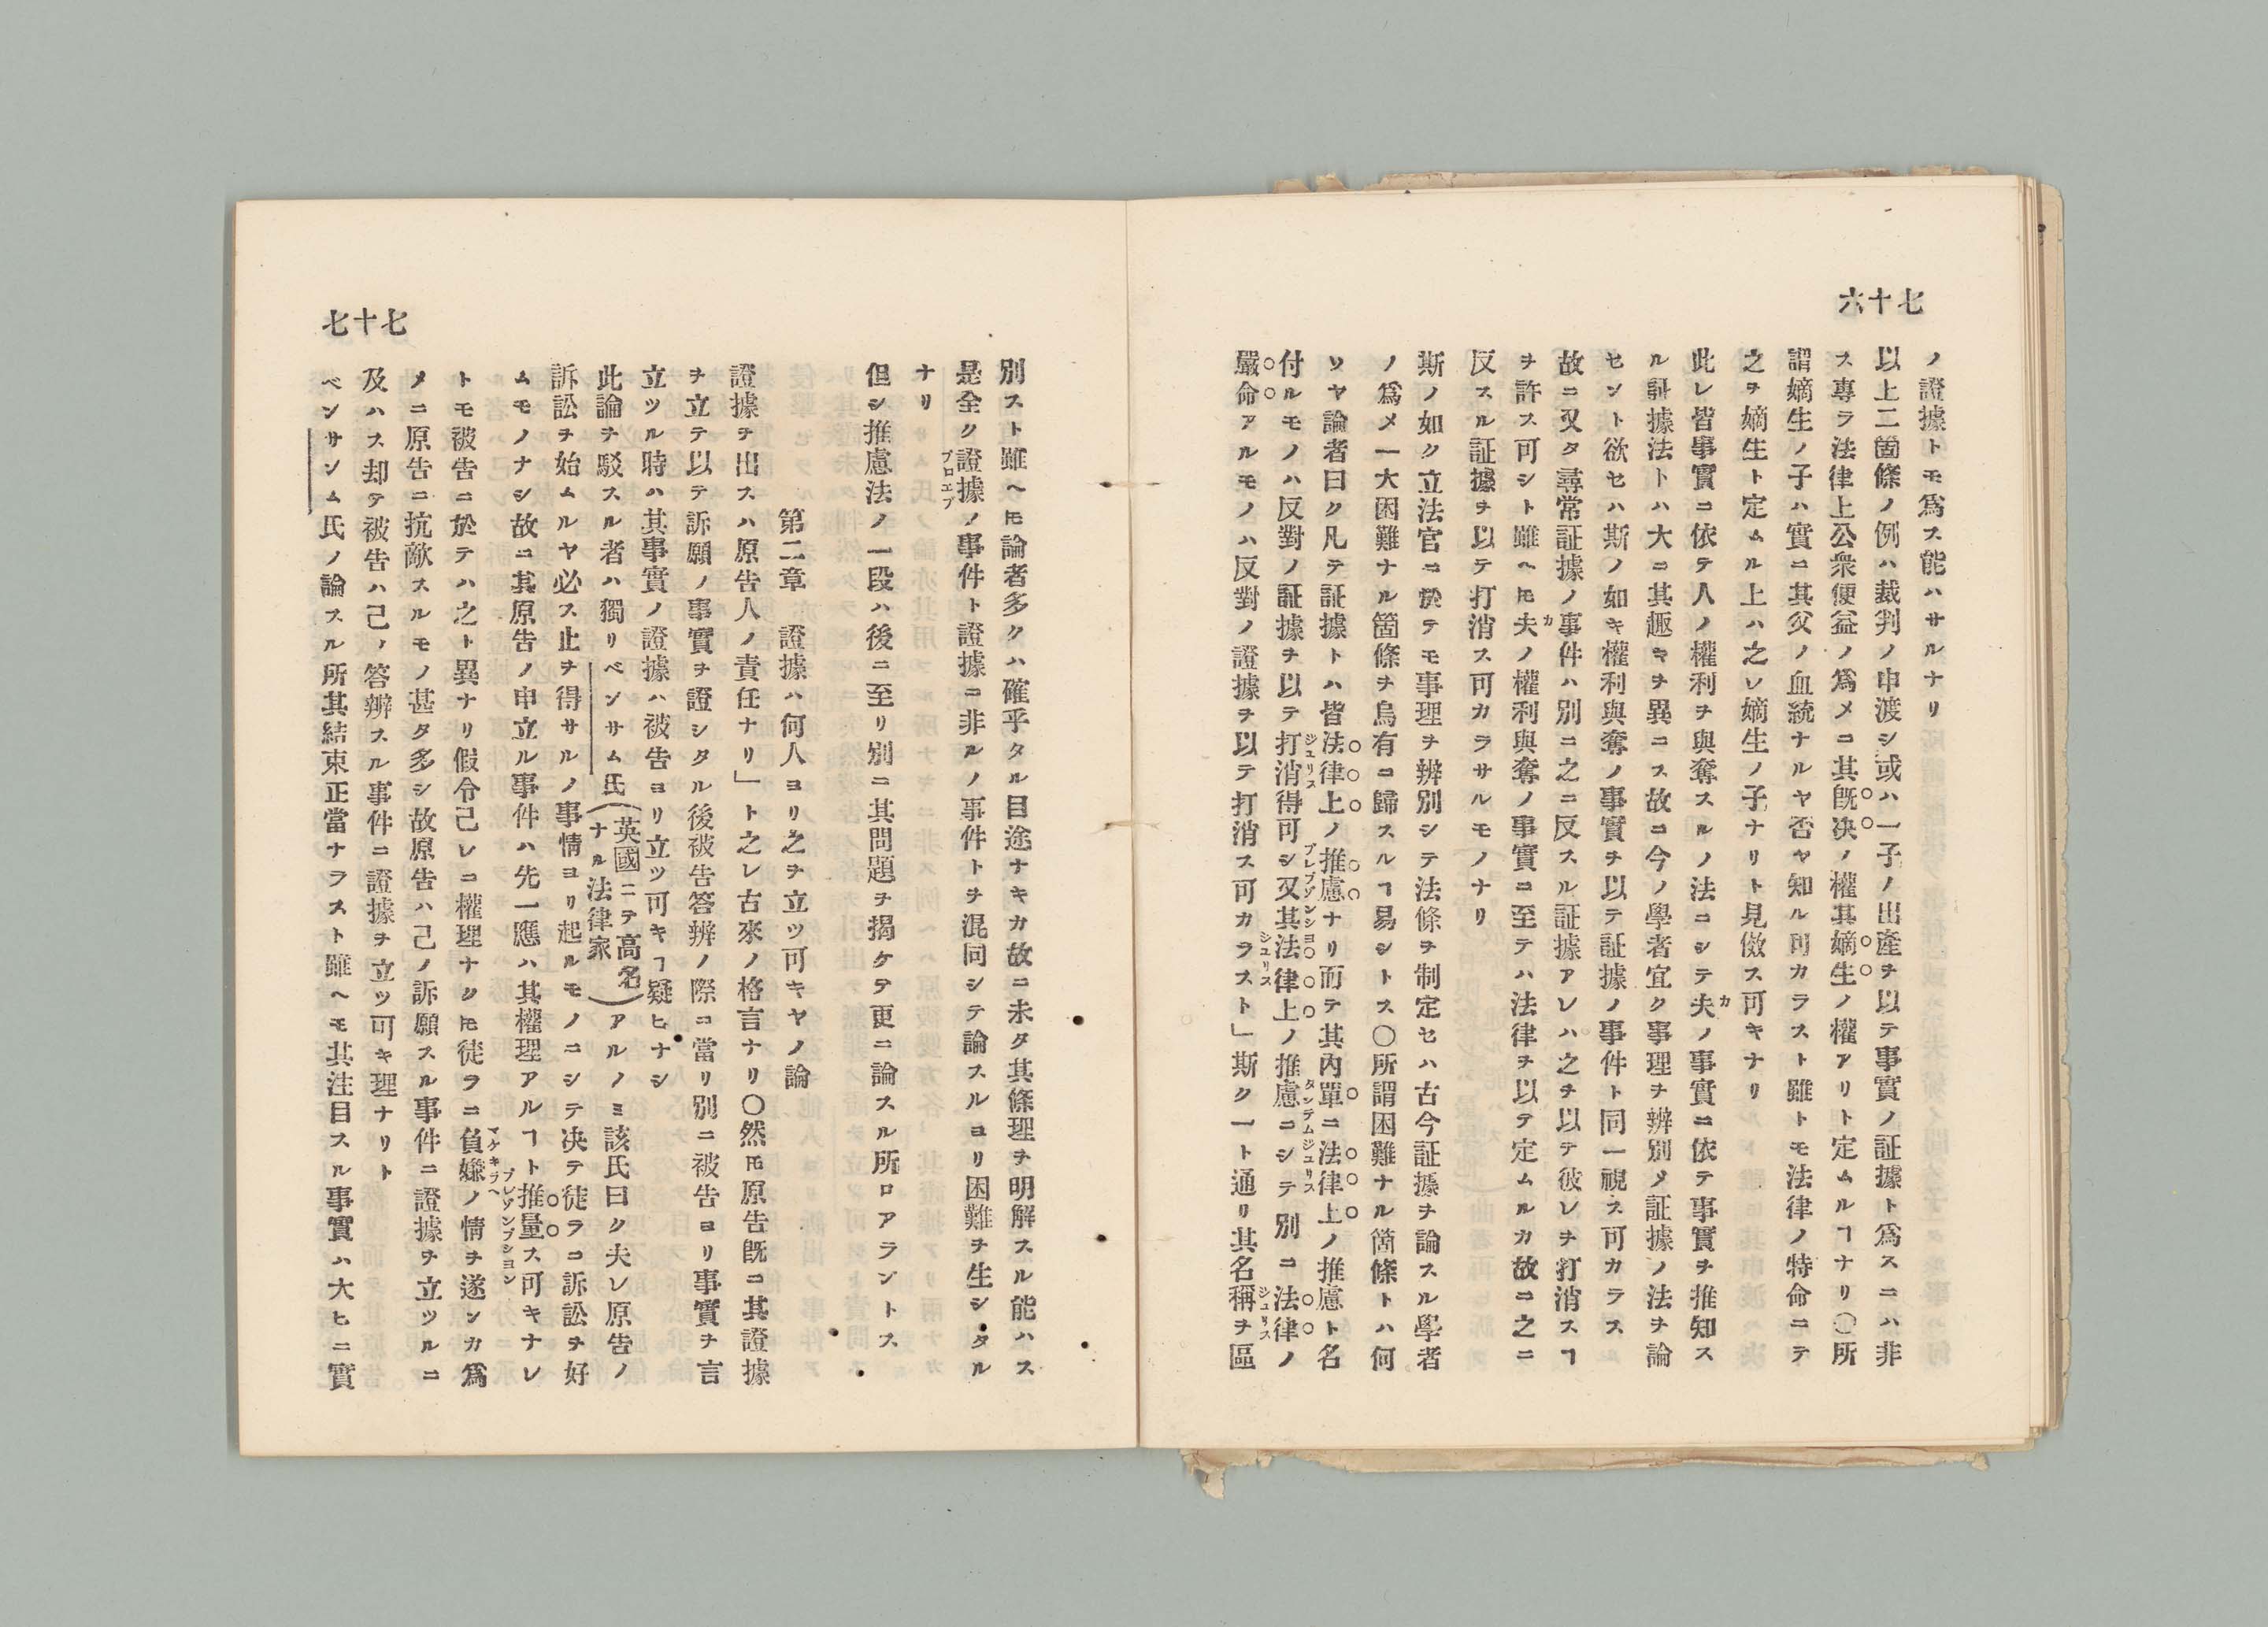 七十六
ノ證據トモ爲ス能ハサルナリ
以上二箇條ノ例ハ裁判ノ申渡シ或ハ一子ノ出產ヲ以テ事實ノ証據ト爲スニハ非
ス專ラ法律上公衆便益ノ爲メニ其既决ノ權其嫡生ノ權アリト定ムルヿナリ〇所
謂嫡生ノ子ハ實ニ其父ノ血統ナルヤ否ヤ知ル可カラスト雖トモ法律ノ特命ニテ
之ヲ嫡生ト定ムル上ハ之レ嫡生ノ子ナリト見做ス可キナリ
此レ皆事實ニ依テ人ノ權利ヲ與奪スルノ法ニシテ夫ノ事實ニ依テ事實ヲ推知ス
カ
ル証據法トハ大ニ其趣キヲ異ニス故ニ今ノ學者宜ク事理ヲ辨別メ証據ノ法ヲ論
セント欲セハ斯ノ如キ權利與奪ノ事實ヲ以テ証據ノ事件ト同一視ス可カラス
故ニ又タ尋常証據ノ事件ハ別ニ之ニ反スル証據アレハ之ヲ以テ彼レヲ打消スヿ
ヲ許ス可シト雖ヘ𪜈夫ノ權利與奪ノ事實ニ至テハ法律ヲ以テ定ムルカ故ニ之ニ
カ
反スル証據ヲ以テ打消ス可カラサルモノナリ
斯ノ如ク立法官ニ於テモ事理ヲ辨別シテ法條ヲ制定セハ古今証據ヲ論スル學者
ノ爲メ一大困難ナル箇條ヲ烏有ニ歸スルヿ易シトス〇所謂困難ナル箇條トハ何
ソヤ論者曰ク凡テ証據トハ皆法律上ノ推慮ナリ而テ其內單ニ法律上ノ推慮ト名
ジュリス プレプゾンシヨ タンテムジュリス
付ルモノハ反對ノ証據ヲ以テ打消得可シ又其法律上ノ推慮ニシテ別ニ法律ノ
ジュリス ジュリス
嚴命アルモノハ反對ノ證據ヲ以テ打消ス可カラスト」斯ク一ト通リ其名稱ヲ區
七十七
別スト雖ヘ𪜈論者多クハ確乎タル目途ナキカ故ニ未タ其條理ヲ明解スル能ハス
是全ク證據ノ事件ト證據ニ非ルノ事件トヲ混同シテ論スルヨリ困難ヲ生シタル
プロエブ
ナリ
但シ推慮法ノ一段ハ後ニ至リ別ニ其問題ヲ揭ケテ更ニ論スル所ロアラントス
第二章　證據ハ何人ヨリ之ヲ立ツ可キヤノ論
證據ヲ出スハ原告人ノ責任ナリ」ト之レ古來ノ格言ナリ〇然𪜈原告既ニ其證據
ヲ立テ以テ訴願ノ事實ヲ證シタル後被告答辨ノ際ニ當リ別ニ被告ヨリ事實ヲ言
立ツル時ハ其事實ノ證據ハ被告ヨリ立ツ可キヿ疑ヒナシ
此論ヲ駁スル者ハ獨リベンサム氏（英國ニテ高名ナル法律家）アルノミ該氏曰ク夫レ原告ノ
訴訟ヲ始ムルヤ必ス止ヲ得サルノ事情ヨリ起ルモノニシテ决テ徒ラニ訴訟ヲ好
ムモノナシ故ニ其原告ノ申立ル事件ハ先一應ハ其權理アルヿト推量ス可キナレ
プレゾンプシヨン
トモ被告ニ於テハ之ト異ナリ假令己レニ權理ナク𪜈徒ラニ負嫌ノ情ヲ遂ンカ爲
マケキラヘ
メニ原告ニ抗敵スルモノ甚タ多シ故原告ハ己ノ訴願スル事件ニ證據ヲ立ツルニ
及ハス却テ被告ハ己ノ答辨スル事件ニ證據ヲ立ツ可キ理ナリト
ベンサンム氏ノ論スル所其結束正當ナラスト雖ヘモ其注目スル事實ハ大ヒニ實